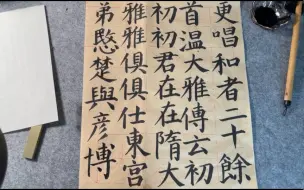 更唱和者二十餘
首温大雅傳云初
初初君在在隋大
雅雅俱俱仕東宮
弟愍楚與彦博